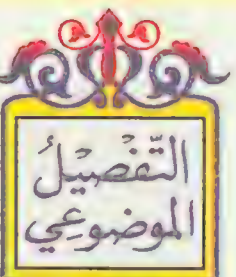 التَّفصْيْلُ
الموضوعي